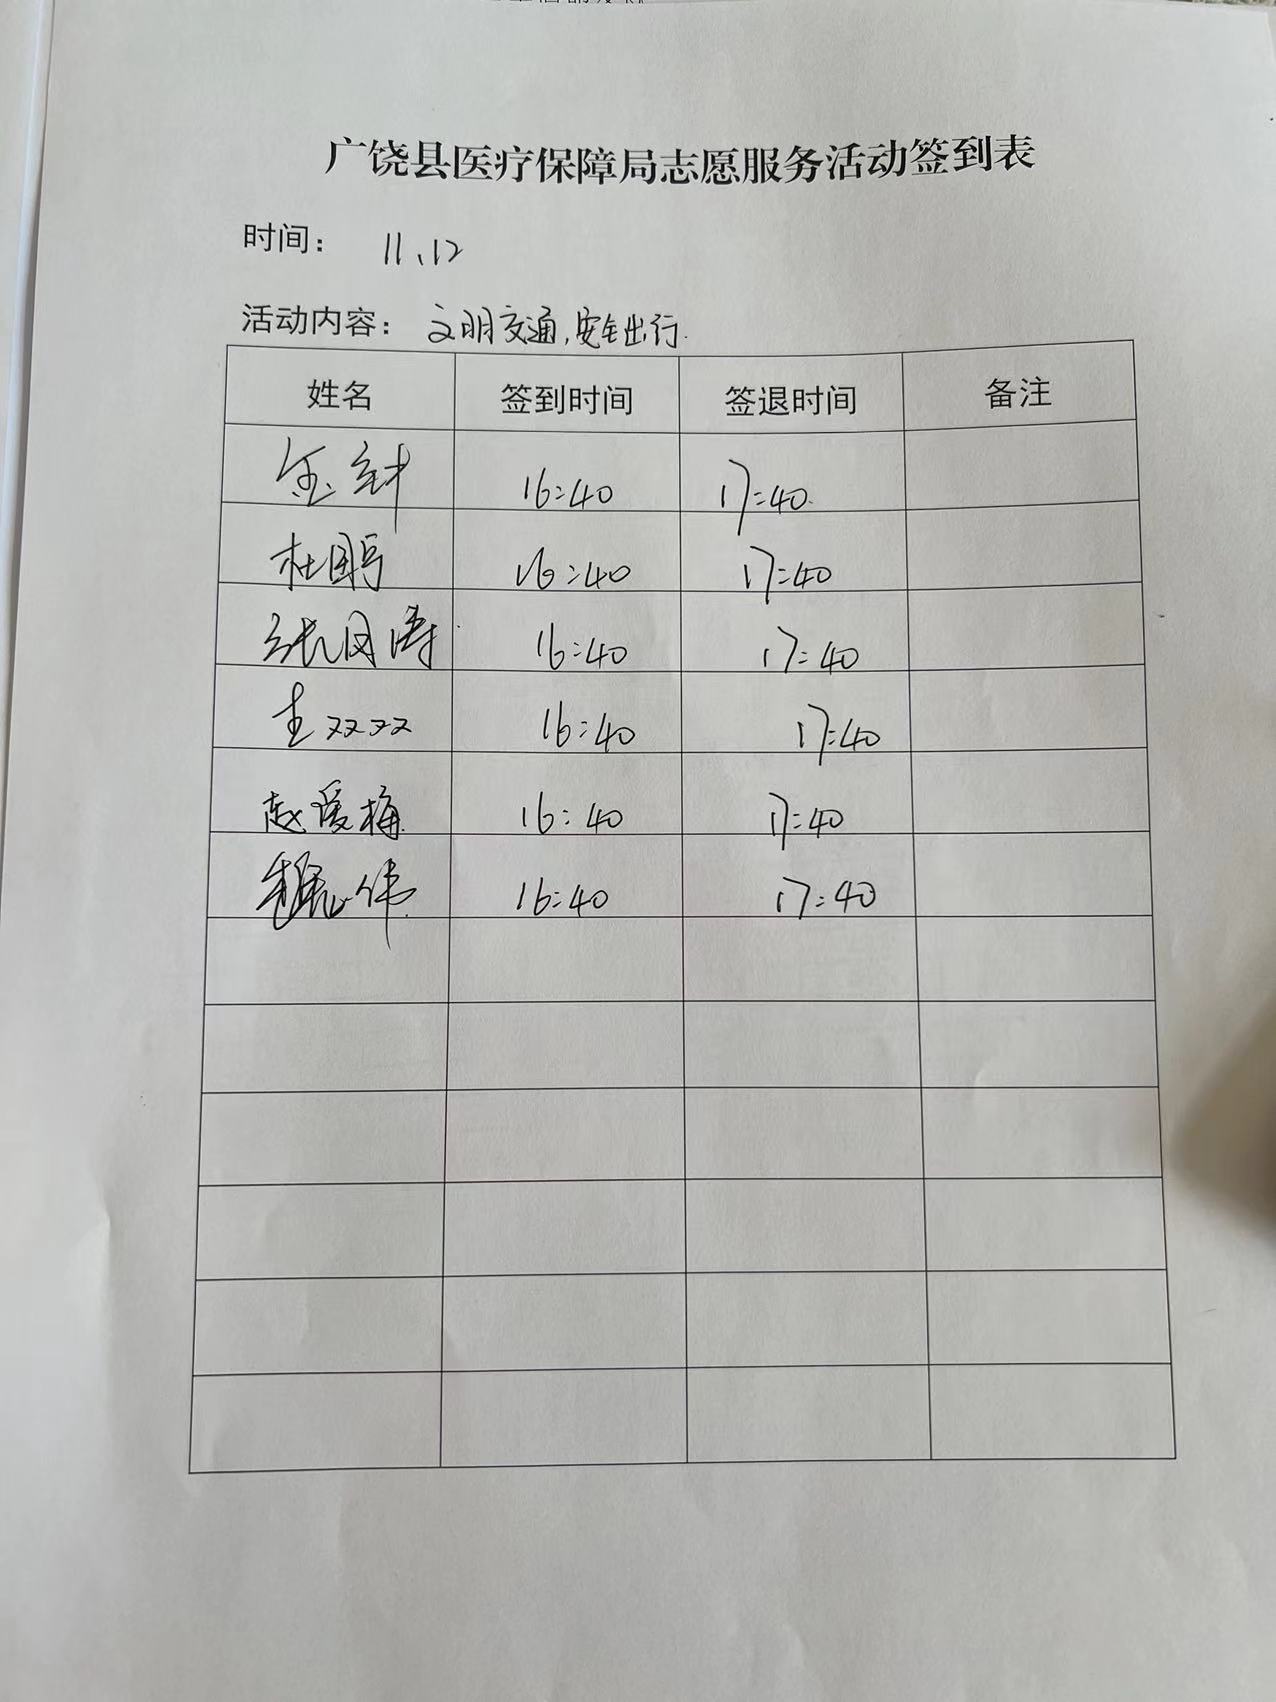 广饶县医疗保障局志愿服务活动签到表
时间： 11、12
活动内容： 文明交通,安全出行.
姓名 签到时间 签退时间 备注
16:40 17:40
杜鹃 16:40 17:40
张风涛 16:40 17:40
王双双 16:40 17:40
赵爱梅 16:40 17:40
伟 16:40 17:40